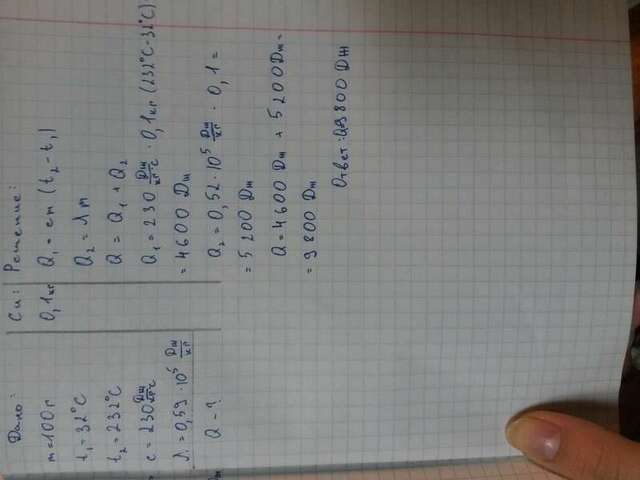 Дано:
m=100г
t₁=32°C
t₂=232°C
c=230 Дж/кг°C
λ=0,59·10⁵ Дж/кг
Q-?
Си:
0,1кг
Решение:
Q₁=cm(t₂-t₁)
Q₂=λm
Q=Q₁+Q₂
Q₁=230 Дж/кг°C·0,1кг(232°C-32°C)
=4600 Дж
Q₂=0,52·10⁵ Дж/кг·0,1=
=5200 Дж
Q=4600 Дж+5200Дж=
=9800 Дж
Ответ:Q=9800 Дж